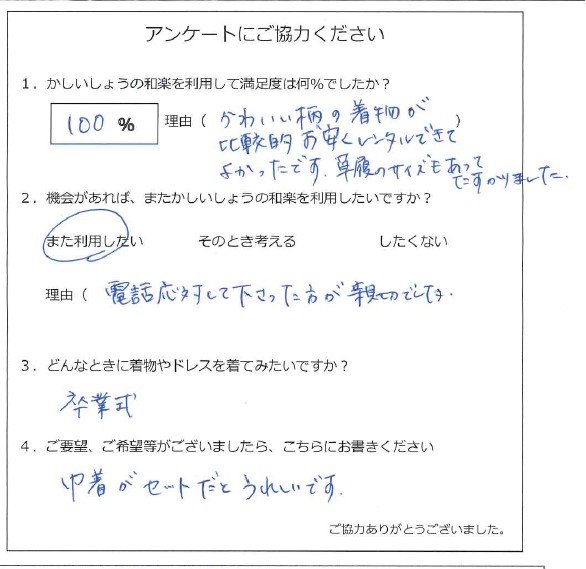 アンケートにご協力ください
1．かしいしょうの和楽を利用して満足度は何%でしたか？
100 %
理由（ かわいい柄の着物が ）
比較的お安くレンタルできて
よかったです。草履のサイズもあって
たすかりました。
2．機会があれば、またかしいしょうの和楽を利用したいですか？
また利用したい そのとき考える したくない
理由（ 電話応対して下さった方が親切でした。
3．どんなときに着物やドレスを着てみたいですか？
卒業式
4．ご要望、ご希望等がございましたら、こちらにお書きください
巾着がセットだとうれしいです。
ご協力ありがとうございました。